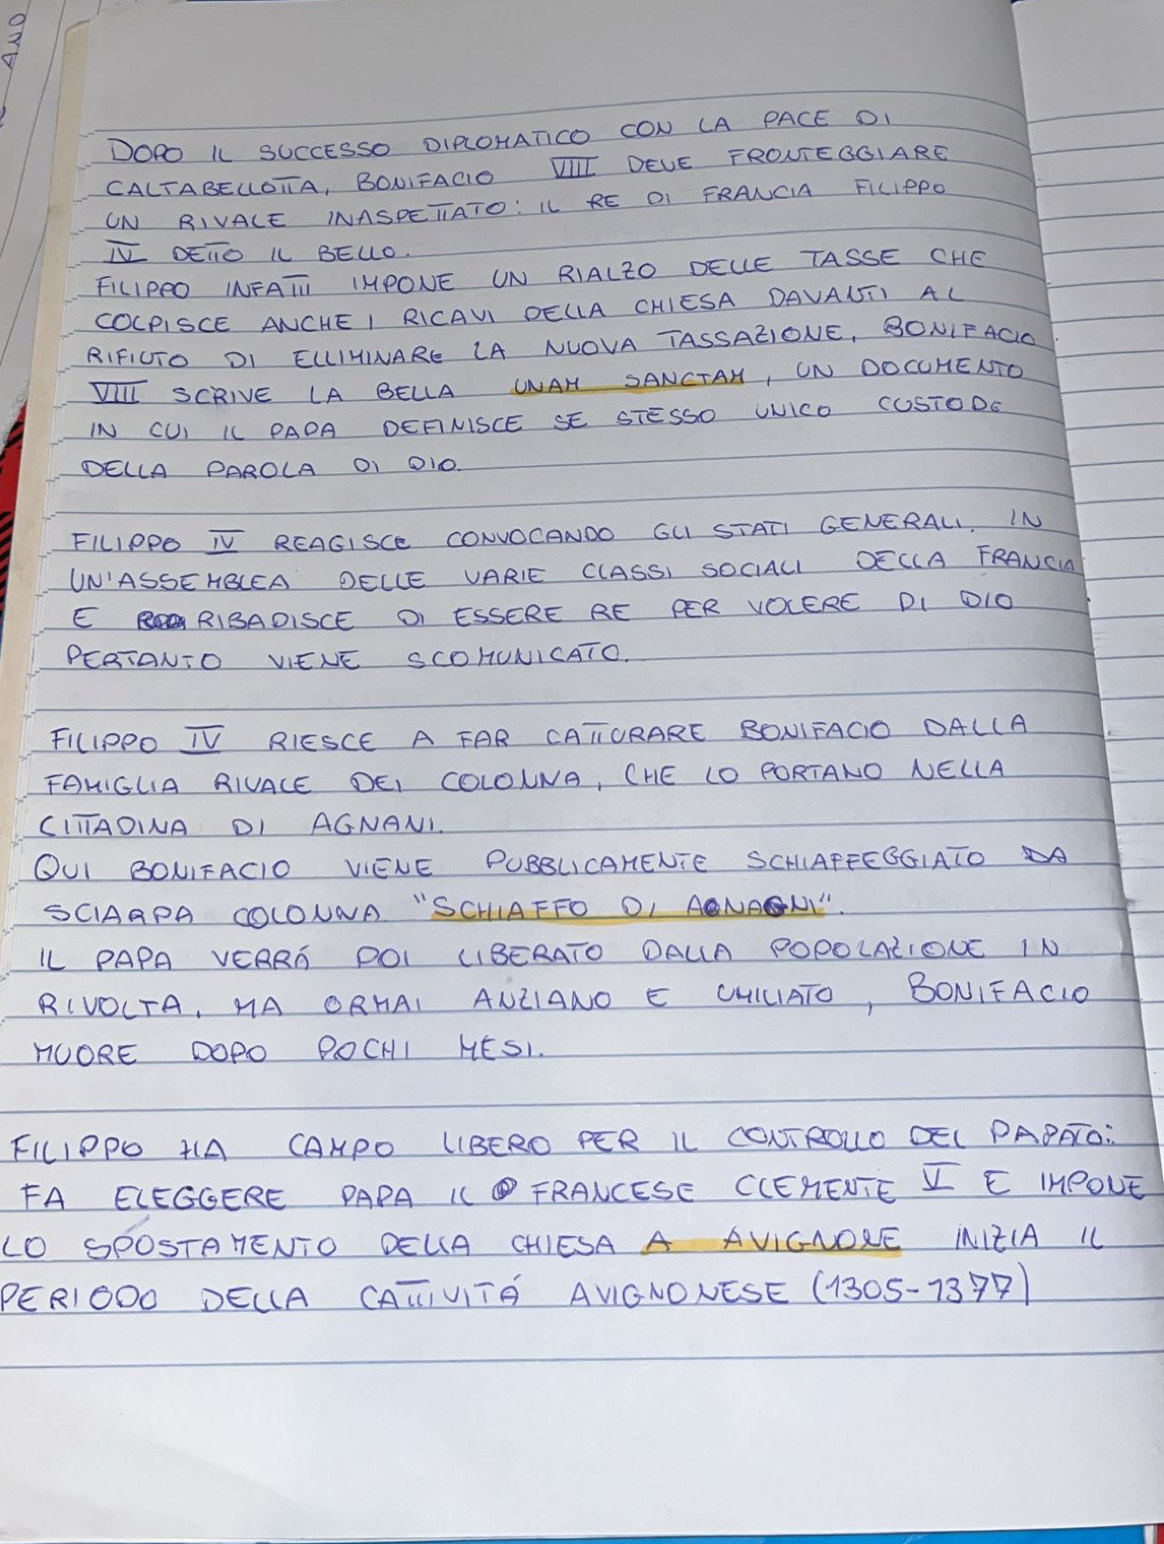 ANO
DOPO IL SUCCESSO DIPLOMATICO CON LA PACE DI
CALTABELLOTTA, BONIFACIO VIII DEVE FRONTEGGIARE
UN RIVALE INASPETTATO: IL RE DI FRANCIA FILIPPO
IV DETTO IL BELLO.
FILIPPO INFATTI IMPONE UN RIALZO DELLE TASSE CHE
COLPISCE ANCHE I RICAVI DELLA CHIESA DAVANTI AL
RIFIUTO DI ELLIMINARE LA NUOVA TASSAZIONE, BONIFACIO
VIII SCRIVE LA BELLA UNAM SANCTAM, UN DOCUMENTO
IN CUI IL PAPA DEFINISCE SE STESSO UNICO CUSTODE
DELLA PAROLA DI DIO.
FILIPPO IV REAGISCE CONVOCANDO GLI STATI GENERALI. IN
UN'ASSEMBLEA DELLE VARIE CLASSI SOCIALI DELLA FRANCIA
E RIBADISCE DI ESSERE RE PER VOLERE DI DIO
PERTANTO VIENE SCOMUNICATO.
FILIPPO IV RIESCE A FAR CATTURARE BONIFACIO DALLA
FAMIGLIA RIVALE DEI COLONNA, CHE LO PORTANO NELLA
CITTADINA DI AGNANI.
QUI BONIFACIO VIENE PUBBLICAMENTE SCHIAFFEGGIATO DA
SCIARPA COLONNA "SCHIAFFO DI ANAGNI".
IL PAPA VERRÁ POI LIBERATO DALLA POPOLAZIONE IN
RIVOLTA, MA ORMAI ANZIANO E UMILIATO, BONIFACIO
MUORE DOPO POCHI MESI.
FILIPPO HA CAMPO LIBERO PER IL CONTROLLO DEL PAPATO:
FA ELEGGERE PAPA IL FRANCESE CLEMENTE V E IMPONE
LO SPOSTAMENTO DELLA CHIESA A AVIGNONE INIZIA IL
PERIODO DELLA CATTIVITÁ AVIGNONESE (1305-1377)